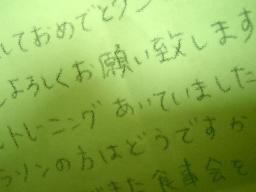 しておめでとう
よろしくお願い致します
トレーニングあいていました
ラソンの方はどうですか
また食事会を